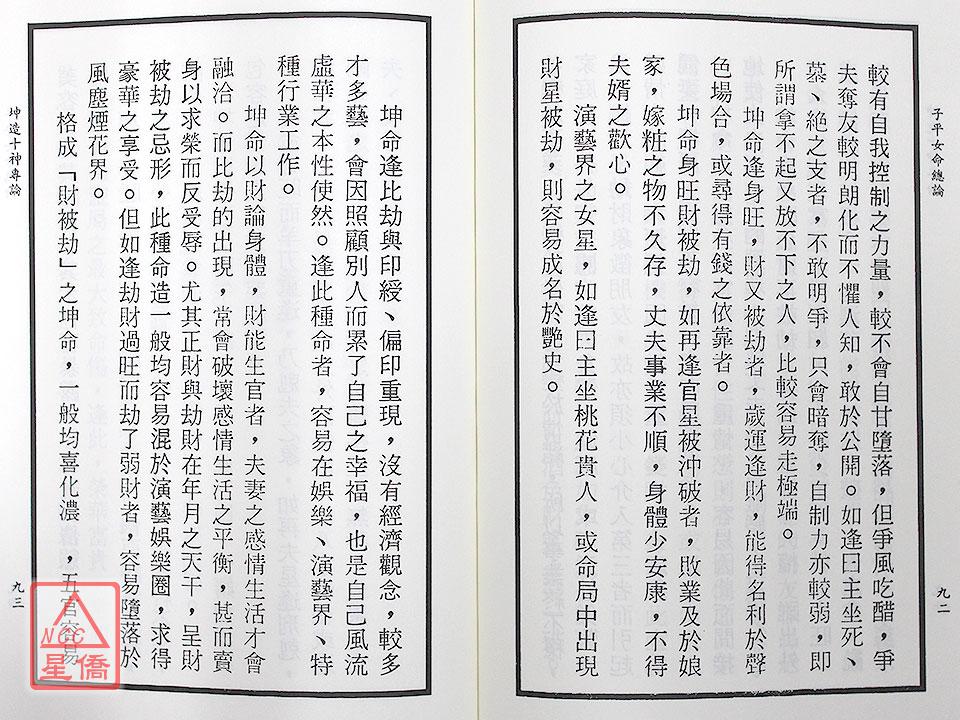 子平女命總論
九二
較有自我控制之力量，較不會自甘墮落，但爭風吃醋，爭
夫奪友較明朗化而不懼人知，敢於公開。如逢日主坐死、
墓、絕之支者，不敢明爭，只會暗奪，自制力亦較弱，即
所謂拿不起又放不下之人，比較容易走極端。
坤命逢身旺，財又被劫者，歲運逢財，能得名利於聲
色場合，或尋得有錢之依靠者。
坤命身旺財被劫，如再逢官星被沖破者，敗業及於娘
家，嫁粧之物不久存，丈夫事業不順，身體少安康，不得
夫婿之歡心。
演藝界之女星，如逢日主坐桃花貴人，或命局中出現
財星被劫，則容易成名於艷史。
坤命逢比劫與印綬、偏印重現，沒有經濟觀念，較多
才多藝，會因照顧別人而累了自己之幸福，也是自己風流
虛華之本性使然。逢此種命者，容易在娛樂、演藝界、特
種行業工作。
坤命以財論身體，財能生官者，夫妻之感情生活才會
融洽。而比劫的出現，常會破壞感情生活之平衡，甚而賣
身以求榮而反受辱。尤其正財與劫財在年月之天干，呈財
被劫之忌形，此種命造一般均容易混於演藝娛樂圈，求得
豪華之享受。但如逢劫財過旺而劫了弱財者，容易墮落於
風塵煙花界。
格成「財被劫」之坤命，一般均喜化濃，五官容易
坤造十神專論
九三
NCC
星僑